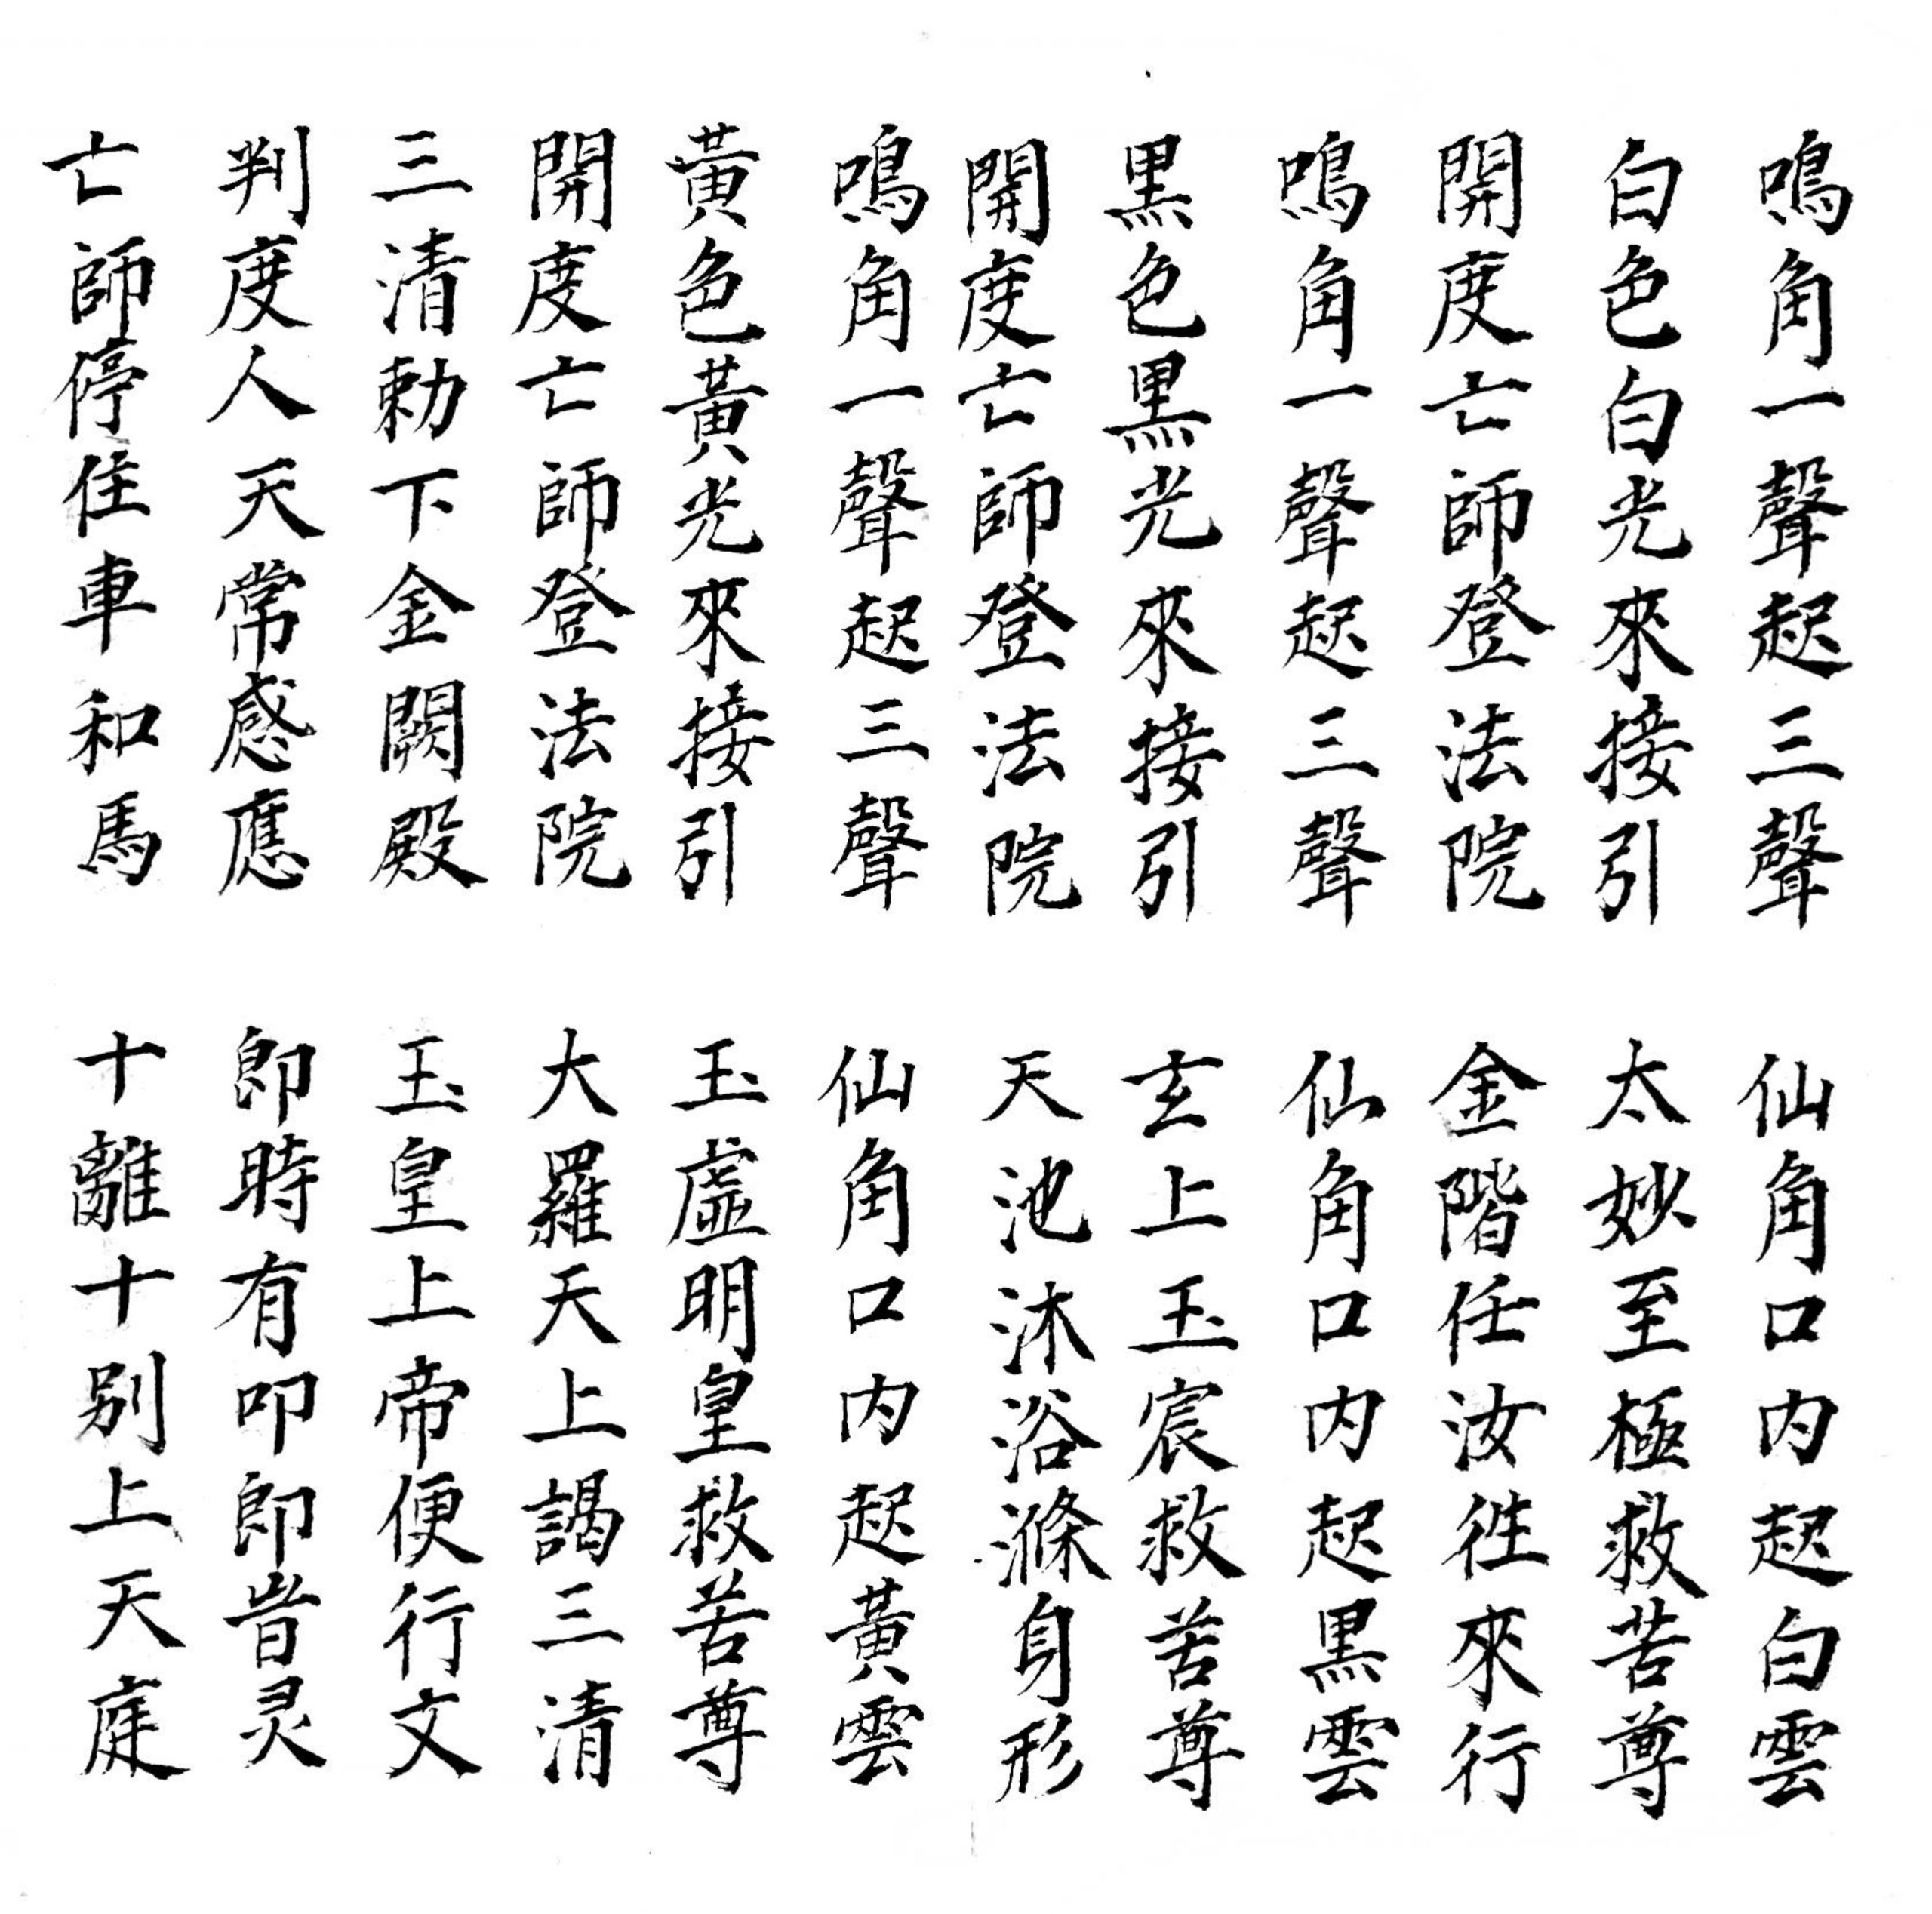 鳴角一聲起三聲　仙角口内起白雲
白色白光來接引　太妙至極救苦尊
開度亡師登法院　金階任汝徃來行
鳴角一聲起三聲　仙角口内起黒雲
黒色黒光來接引　玄上玉宸救苦尊
開度亡師登法院　天池沐浴滌身形
鳴角一聲起三聲　仙角口内起黄雲
黄色黄光來接引　玉虛明皇救苦尊
開度亡師登法院　大羅天上謁三清
三清勅下金闕殿　玉皇上帝便行文
判度人天常感應　即時有叩即皆灵
亡師停住車和馬　十離十别上天庭